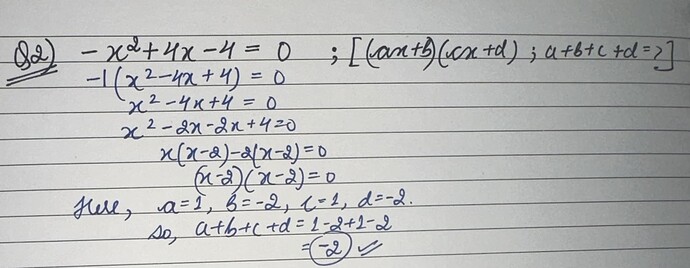 Q2) -x²+4x-4 = 0 ; [(ax+b)(cx+d) ; a+b+c+d=?]
-1(x²-4x+4) = 0
x²-4x+4 = 0
x²-2x-2x+4=0
x(x-2)-2(x-2)=0
(x-2)(x-2)=0
Here, a=1, b=-2, c=1, d=-2.
So, a+b+c+d=1-2+1-2
=-2 ✓